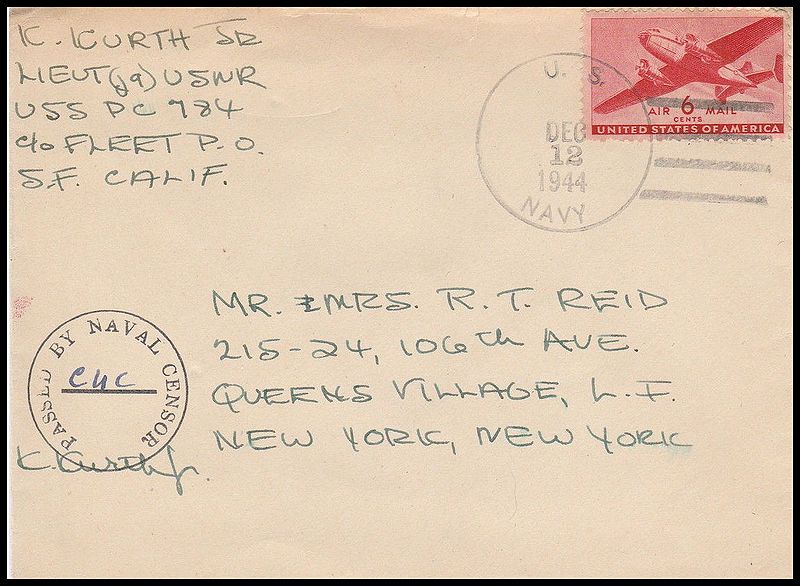 K. KURTH JR
LIEUT(jg) USNR
USS PC 784
c/o FLEET P.O.
S.F. CALIF.
U. S.
DEC
12
1944
NAVY
AIR 6 MAIL
CENTS
UNITED STATES OF AMERICA
MR. & MRS. R. T. REID
215-24, 106th AVE.
QUEENS VILLAGE, L. I.
NEW YORK, NEW YORK
PASSED BY NAVAL CENSOR
K. Kurth Jr.